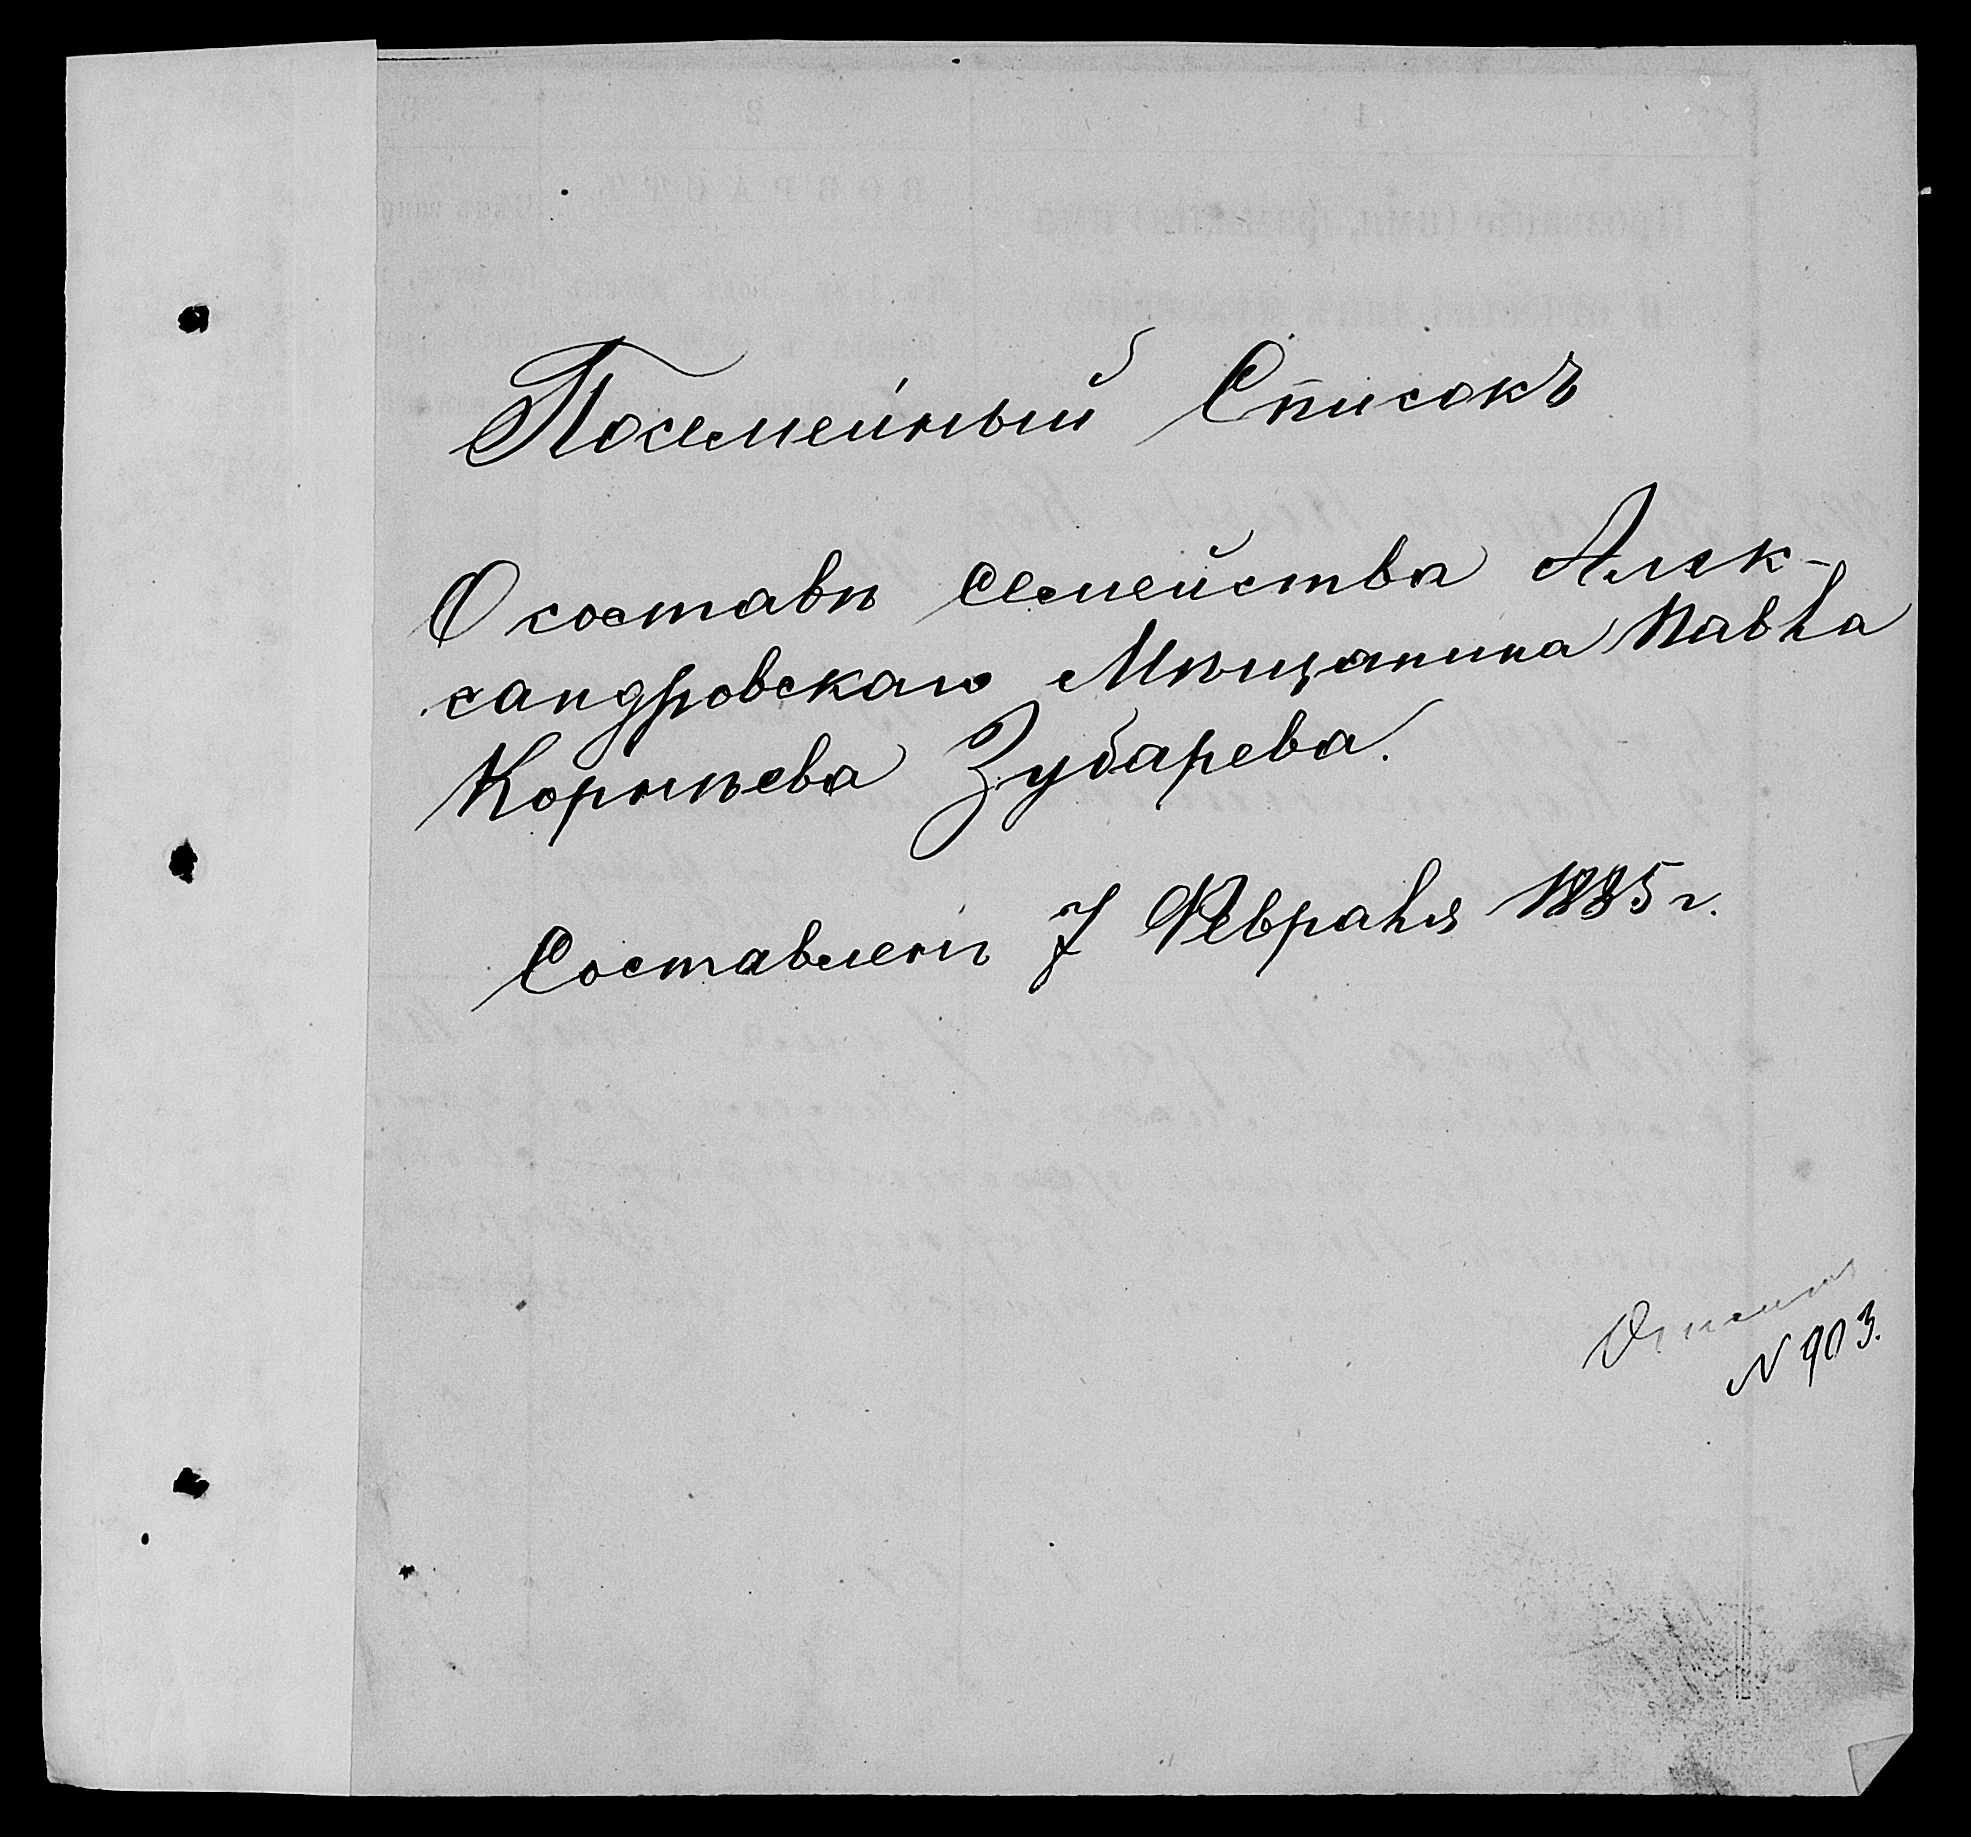 Посемейный Списокъ
О составѣ Семейства Алек-
сандровскаго Мѣщанина Павла
Корнѣева Зубарева.
Составленъ 7 Февраля 1885 г.
N 903.